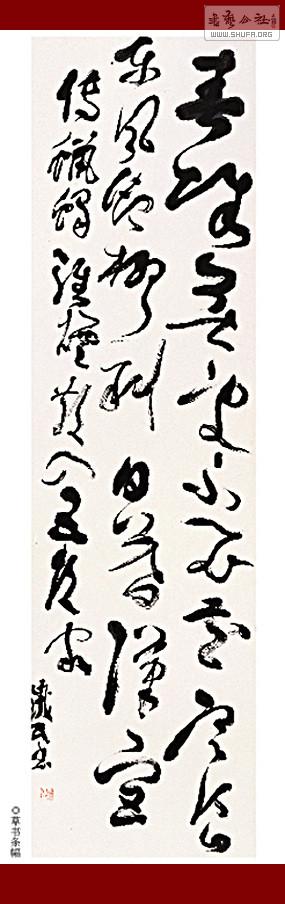 書藝公社
WWW.SHUFA.ORG
春城无处不飞花寒食
东风御柳斜日暮汉宫
传蜡烛轻烟散入五侯家
◎草书条幅